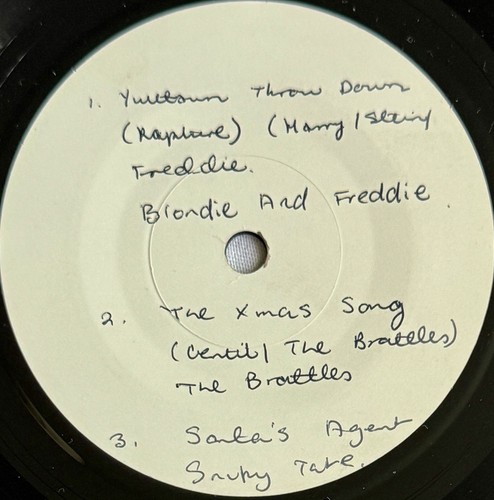 1. Yuletown Throw Down
(Rapture) (Harry / Stein /
Freddie.
Blondie And Freddie.
2. The Xmas Song
(Centil / The Brattles)
The Brattles
3. Santa's Agent
Snuky Tate.